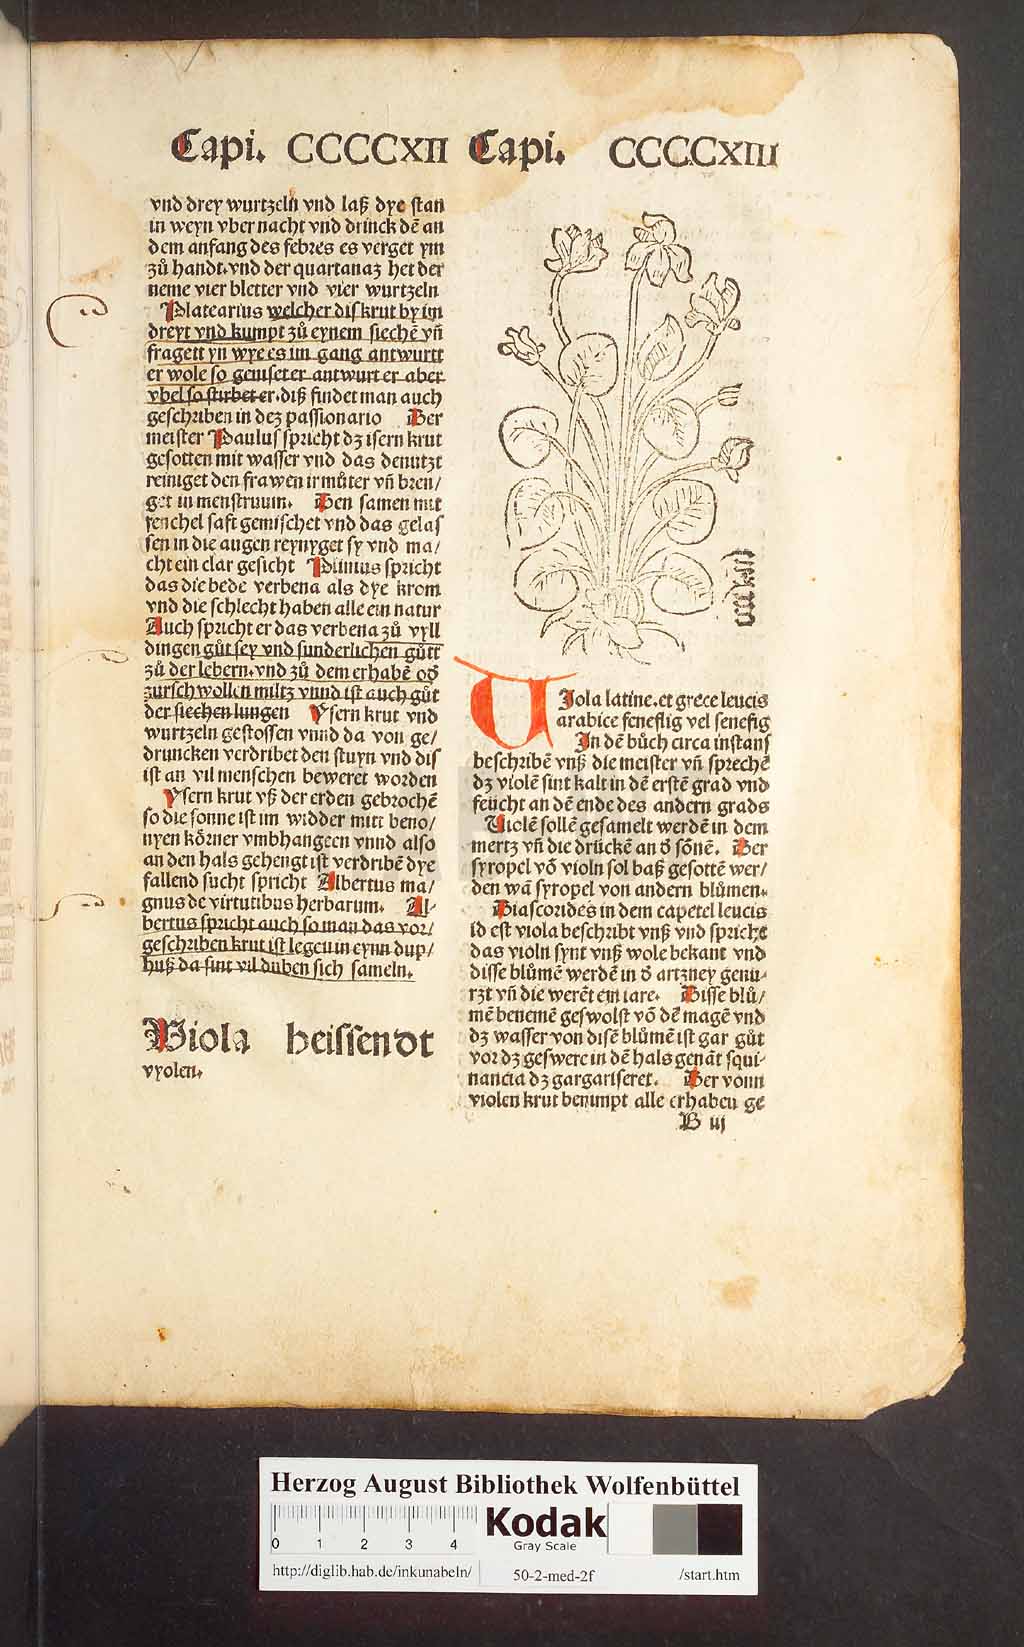 Capi. CCCCXII
vnd drey wurtzeln vnd laß dye stan
in weyn vber nacht vnd drinck dē an
dem anfang des febres es verget ym
zů handt. vnd der quartanaʒ het der
neme vier bletter vnd vier wurtzeln
Platearius welcher dis krut by im
dreyt vnd kumpt zů eynem siechē vñ
fragett yn wye es im gang antwurtt
er wole so geniset er antwurt er aber
vbel so stirbet er. diß findet man auch
geschriben in deʒ passionario Der
meister Paulus spricht dʒ isern krut
gesotten mit wasser vnd das benutzt
reiniget den frawen ir můter vñ bren/
get in menstruum. Den samen mit
fenchel saft gemischet vnd das gelas
sen in die augen reynyget sy vnd ma/
cht ein clar gesicht Plinius spricht
das die bede verbena als dye krom
vnd die schlecht haben alle ein natur
Auch spricht er das verbena zů vyll
dingen gůt sey vnd sunderlichen gůtt
zů der lebern. vnd zů dem erhabē oð
zurschwollen miltz vnnd ist auch gůt
der siechen lungen Ysern krut vnd
wurtzeln gestossen vnnd da von ge/
druncken verdribet den stuyn vnd dis
ist an vil menschen beweret worden
Ysern krut vß der erden gebrochē
so die sonne ist im widder mitt beno/
nyen kőrner vmbhangeen vnnd also
an den hals gehengt ist verdribē dye
fallend sucht spricht Albertus ma/
gnus de virtutibus herbarum. Al-
bertus spricht auch so man das vor/
geschriben krut ist legen in eynn dup/
huß da sint vil duben sich sameln.
Viola heissendt
vyolen.
Capi. CCCCXIII
VIola latine. et grece leucis
arabice seneflig vel senefig
In dē bůch circa instans
beschribē vnß die meister vñ sprechē
dʒ violē sint kalt in dē erstē grad vnd
feücht an dē ende des andern grads
Violē sollē gesamelt werdē in dem
mertz vñ die drückē an ð sőnē. Der
syropel vō violn sol baß gesottē wer/
den wā syropel von andern blůmen.
Diascorides in dem capetel leucis
id est viola beschribt vnß vnd spriche
das violn synt vnß wole bekant vnd
disse blůmē werdē in ð artzney genu-
tzt vñ die werēt eyn iare. Disse blů/
mē benemē geswolst vō dē magē vnd
dʒ wasser von disē blůmē ist gar gůt
vor dʒ geswere in dē hals genāt squi-
nancia dʒ gargariseret. Der vonn
violen krut benimpt alle erhaben ge
B iij
Herzog August Bibliothek Wolfenbüttel
0 1 2 3 4
Kodak
Gray Scale
http://diglib.hab.de/inkunabeln/
50-2-med-2f
/start.htm